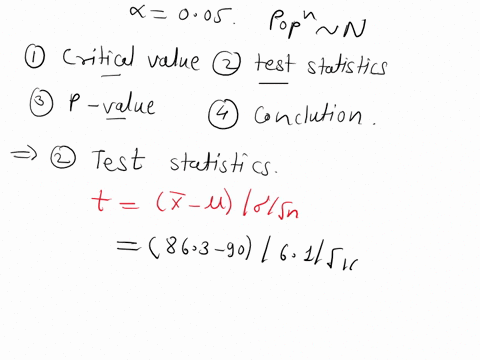 α = 0.05. Popⁿ ~ N
① Critical value ② test statistics
③ P-value ④ Conclution.
⇒ ② Test statistics.
t = (x̄ - μ) / s/√n
= (86.3-90) / 6.1/√